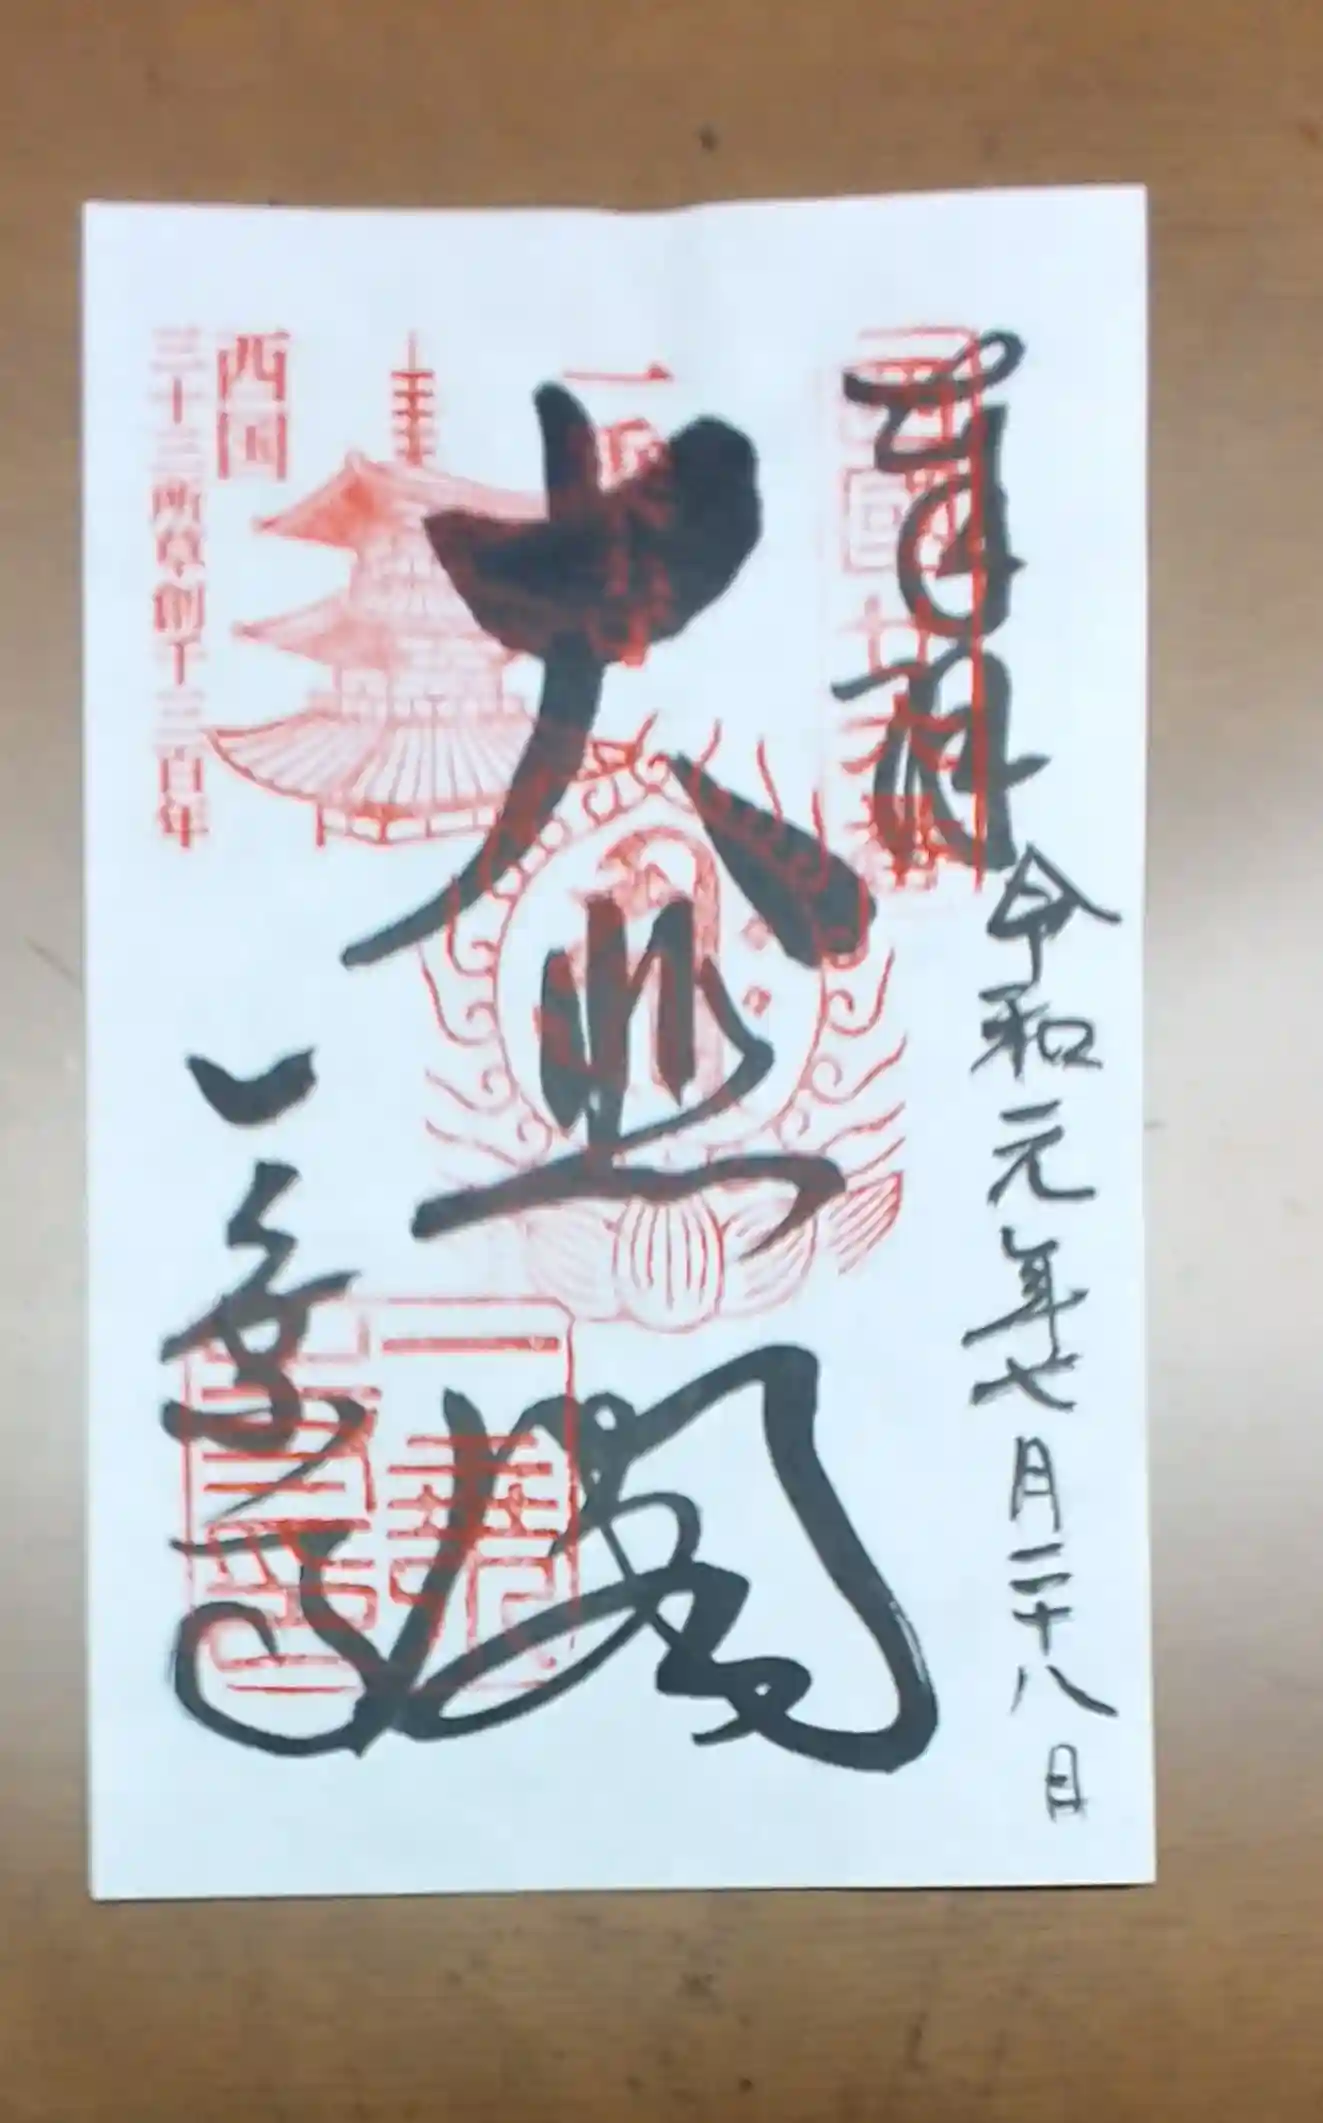 奉拝
令和元年七月二十八日
西国廿六番
一乗寺
大悲閣
一乗寺
西国
三十三所草創千三百年